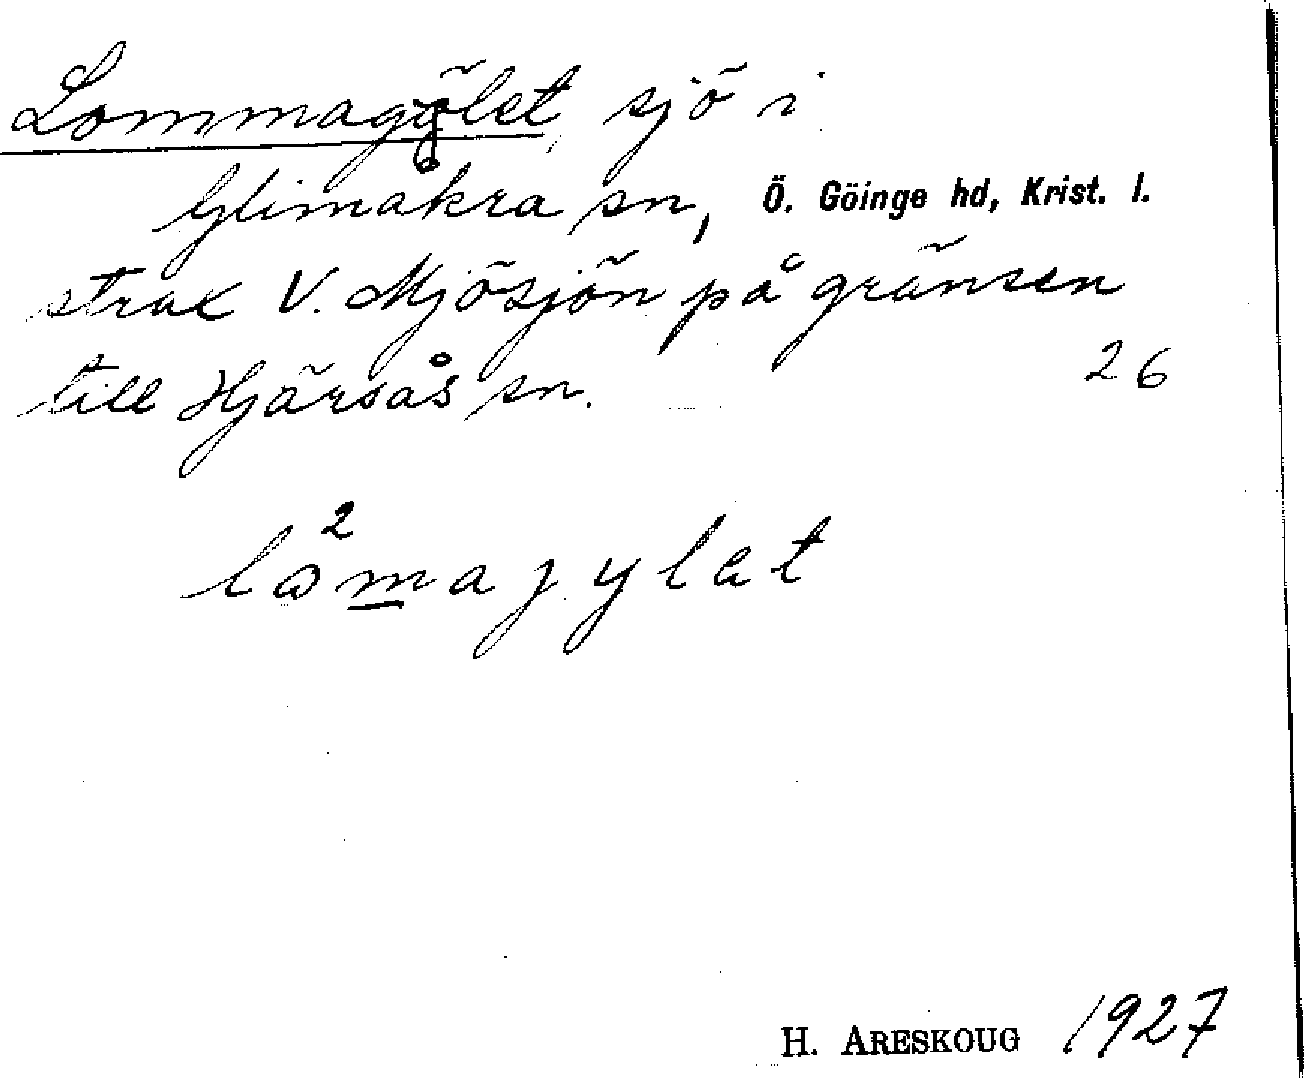 Lommagölet, sjö i
Glimåkra sn, Ö. Göinge hd, Krist. l.
strax V. Mjösjön på gränsen
till Hjärsås sn. 26
2
låmajylet
H. ARESKOUG 1927